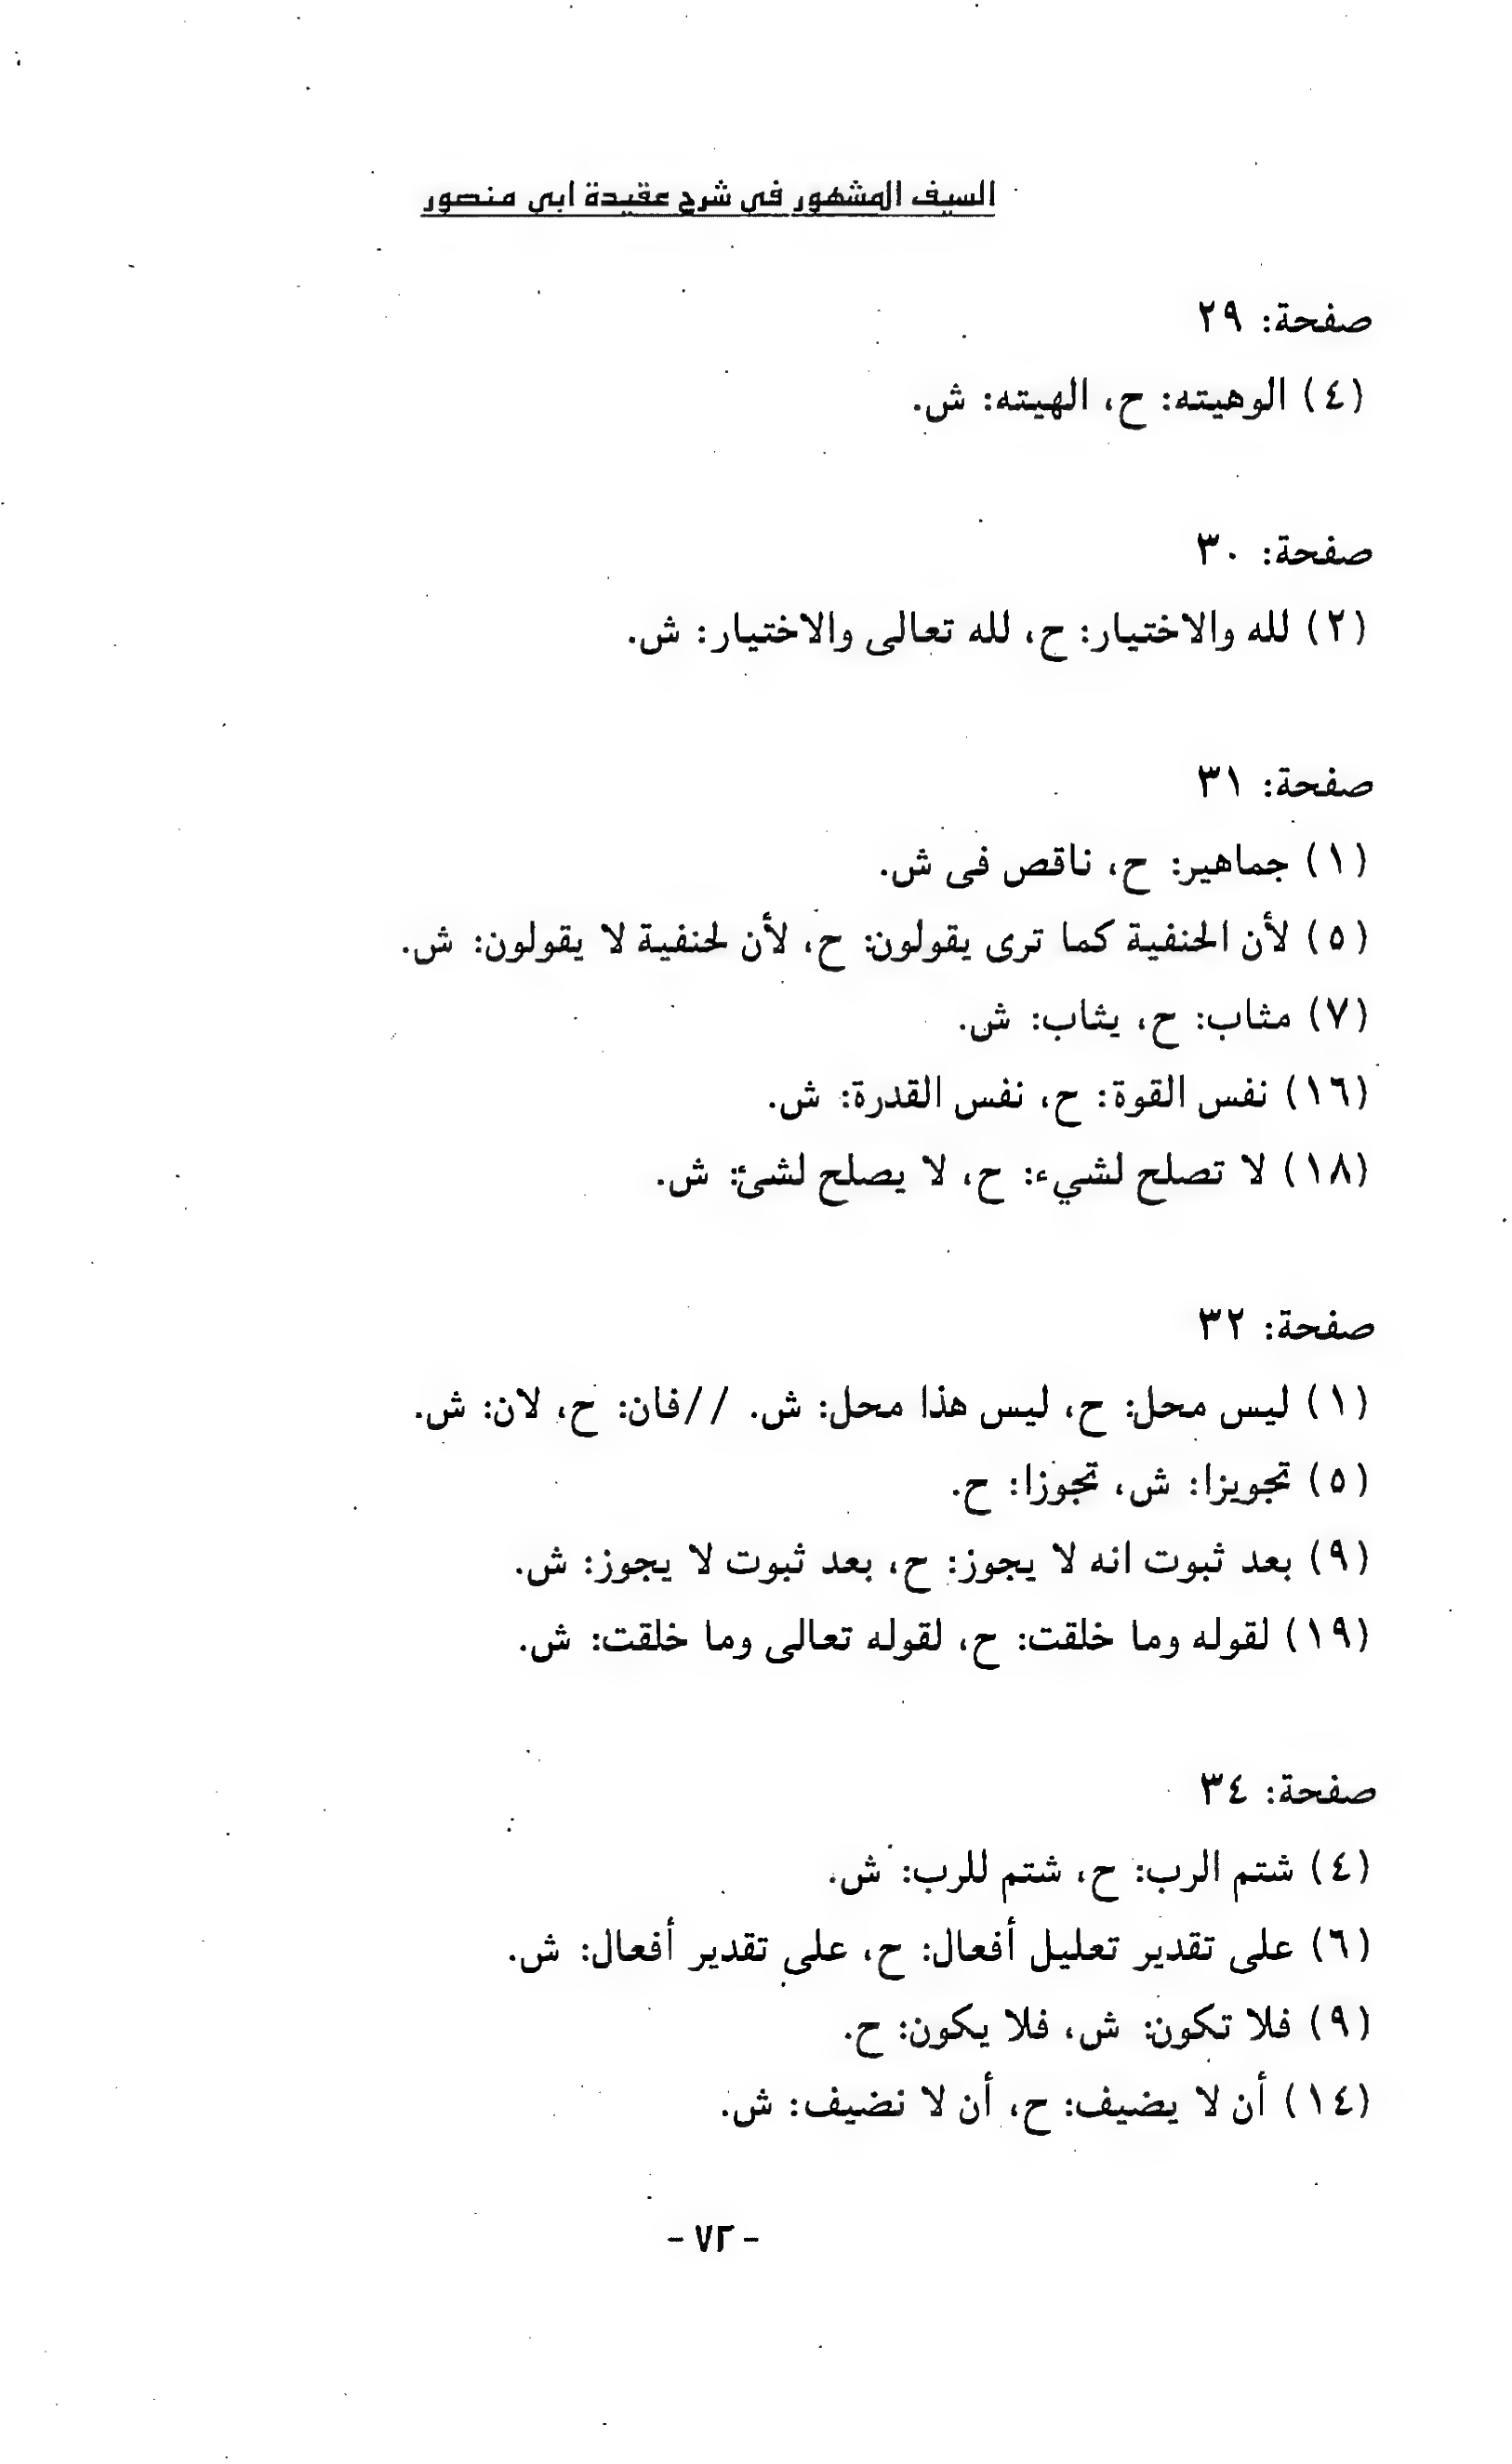 السيف المشهور فى شرح عقيدة ابى منصور
صفحة: ٢٩
(٤) الوهيته: ح، الهيته: ش.
صفحة: ٣٠
(٢) لله والاختيار: ح، لله تعالى والاختيار: ش.
صفحة: ٣١
(١) جماهير: ح، ناقص فى ش.
(٥) لأن الحنفية كما ترى يقولون: ح، لأن لحنفية لا يقولون: ش.
(٧) مثاب: ح، يثاب: ش.
(١٦) نفس القوة: ح، نفس القدرة: ش.
(١٨) لا تصلح لشيء: ح، لا يصلح لشئ: ش.
صفحة: ٣٢
(١) ليس محل: ح، ليس هذا محل: ش. //فان: ح، لان: ش.
(٥) تجويزا: ش، تجوزا: ح.
(٩) بعد ثبوت انه لا يجوز: ح، بعد ثبوت لا يجوز: ش.
(١٩) لقوله وما خلقت: ح، لقوله تعالى وما خلقت: ش.
صفحة: ٣٤
(٤) شتم الرب: ح، شتم للرب: ش.
(٦) على تقدير تعليل أفعال: ح، على تقدير أفعال: ش.
(٩) فلا تكون: ش، فلا يكون: ح.
(١٤) أن لا يضيف: ح، أن لا نضيف: ش.
- ٧٢ -